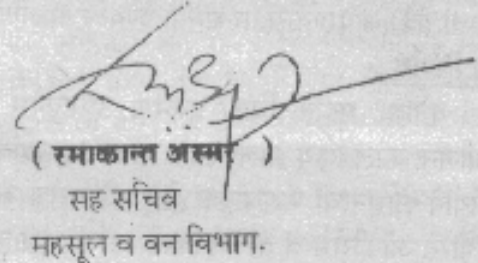 ( रमाकान्त अस्मर )
सह सचिव
महसूल व वन विभाग.